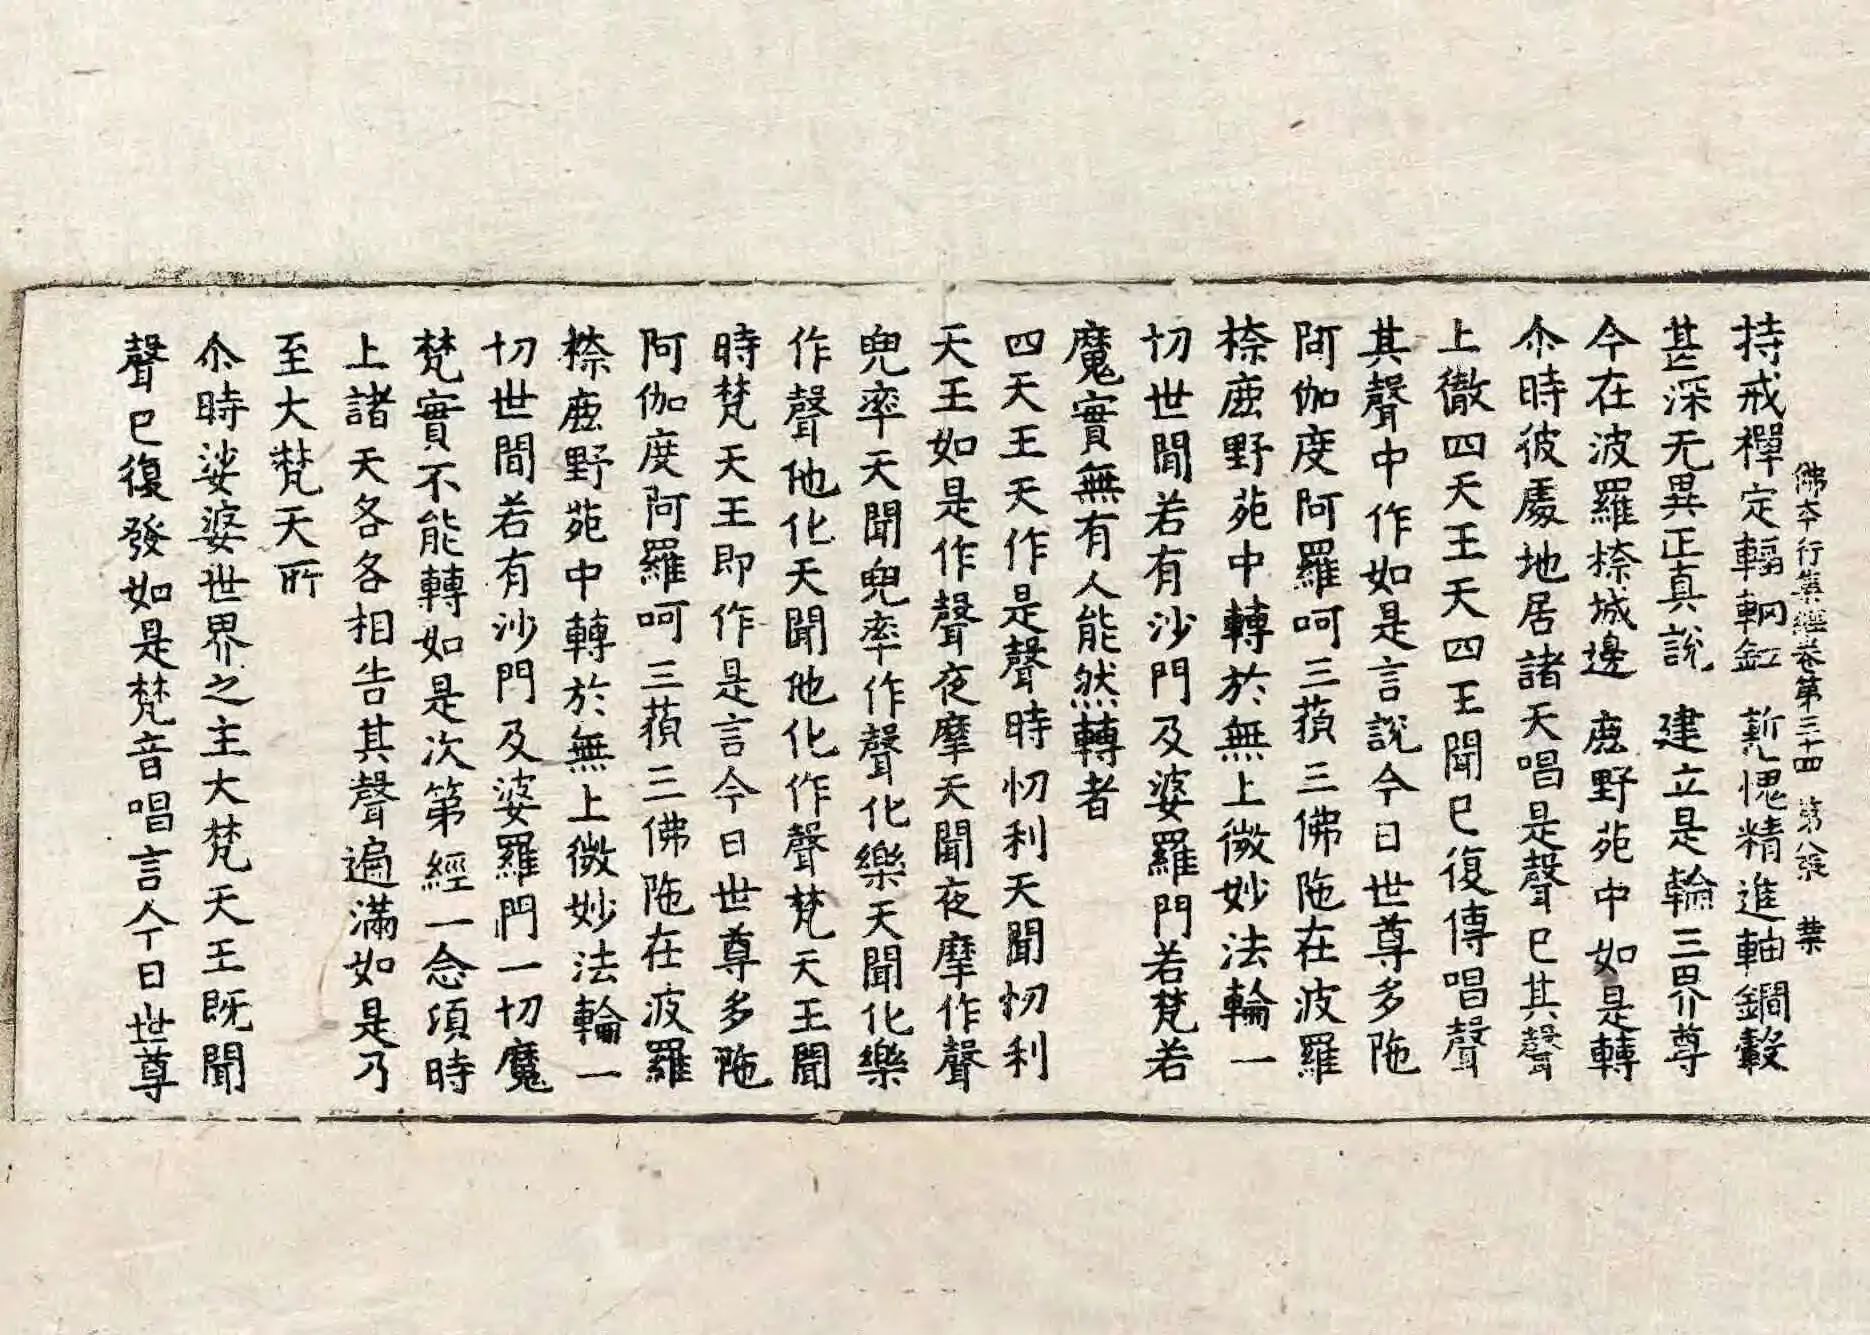 佛夲行集經卷第三十四　第八張　菜
持戒禪定輻輞釭　慙愧精進軸鐧轂
甚深无異正真說　建立是輪三界尊
今在波羅㮈城邊　鹿野苑中如是轉
尒時彼處地居諸天唱是聲已其聲
上徹四天王天四王聞已復傳唱聲
其聲中作如是言說今日世尊多陁
阿伽度阿羅呵三藐三佛陁在波羅
㮈鹿野苑中轉於無上微妙法輪一
切世間若有沙門及婆羅門若梵若
魔實無有人能然轉者
四天王天作是聲時忉利天聞忉利
天王如是作聲夜摩天聞夜摩作聲
兜率天聞兜率作聲化樂天聞化樂
作聲他化天聞他化作聲梵天王聞
時梵天王即作是言今日世尊多陁
阿伽度阿羅呵三藐三佛陁在波羅
㮈鹿野苑中轉於無上微妙法輪一
切世間若有沙門及婆羅門一切魔
梵實不能轉如是次第經一念須時
上諸天各各相告其聲遍滿如是乃
至大梵天所
尒時娑婆世界之主大梵天王既聞
聲已復發如是梵音唱言今日世尊